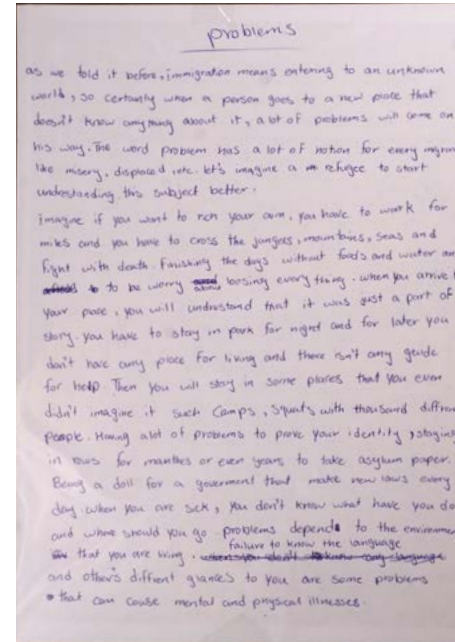 problems
as we told it before, immigration means entering to an unknown
world, so certainly when a person goes to a new place that
doesn't know anything about it, a lot of problems will come on
his way. The word problem has a lot of notion for every
like misery, displaced, etc. let's imagine a refugee to start
understanding this subject better.
imagine if you want to rich your aim, you have to work for
miles and you have to cross the jungles, mountains, seas and
fight with death. Finishing the days without foods and water
to be worry about loosing every thing. when you arrive
your place, you will undrestand that it was just a part of
story. you have to stay in park for night and for later you
don't have any place for living and there isn't any guide
for help. Then you will stay in some places that you even
didn't imagine it such Camps, squats with thousand
People. Having alot of problems to prove your identity, staying
in rows for manthes or even years to take asylum paper.
Being a doll for a goverment that make new laws every
day. when you are sick, you don't know what have you do
and where should you go. problems depends to the
that you are living. failure to know the language
and other's diffrent glances to you are some problems
that can couse mental and physical illnesses.